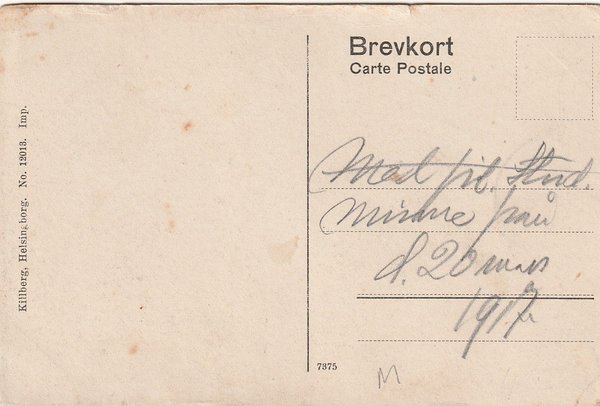 Brevkort
Carte Postale
Killberg, Helsingborg. No. 12013. Imp.
Med fil. stud.
Minne från
d. 20 mars
1917
7375
M